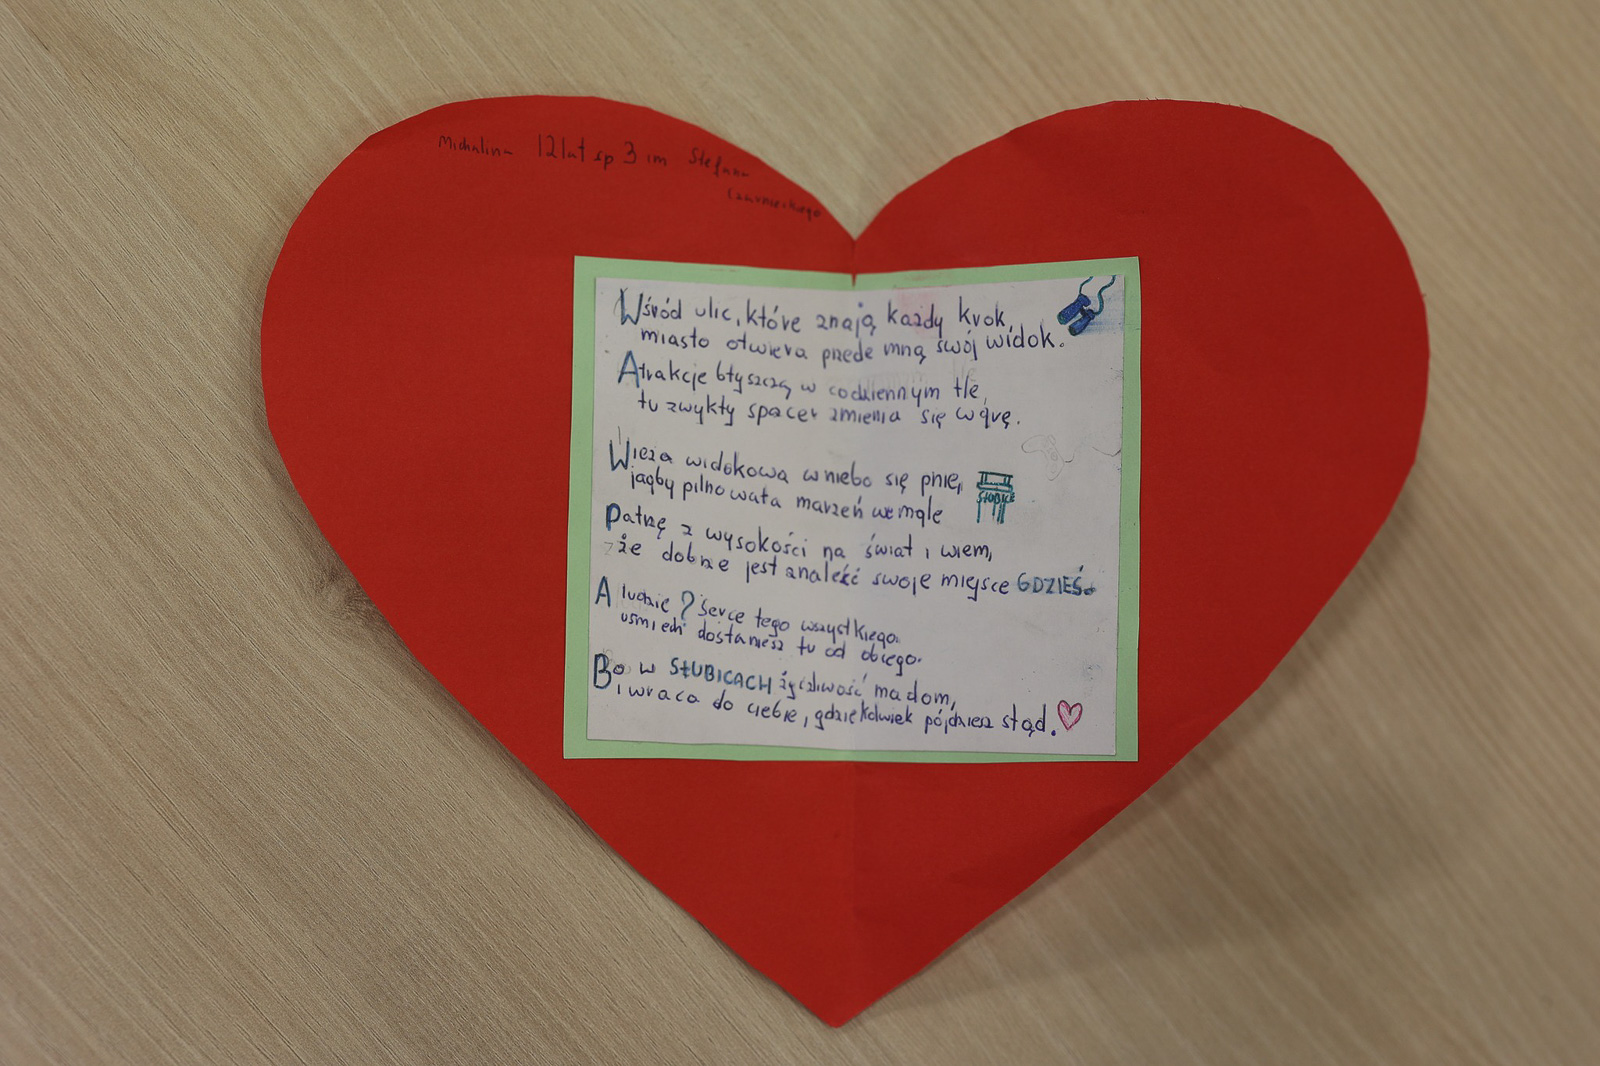 Michalina 12 lat sp 3 im Stefana
Czarnieckiego
Wśród ulic, które znają każdy krok,
miasto otwiera przede mną swój widok.
Atrakcje błyszczą w codziennym tle,
tu zwykły spacer zmienia się w grę.
Wieża widokowa w niebo się pnie,
jagby pilnowała marzeń we mgle
SŁUBICE
Patrzę z wysokości na świat i wiem,
że dobrze jest znaleźć swoje miejsce GDZIEŚ.
A ludzie? Serce tego wszystkiego.
uśmiech dostaniesz tu od obcego.
Bo w SŁUBICACH życzliwość ma dom,
i wraca do ciebie, gdziekolwiek pójdziesz stąd.